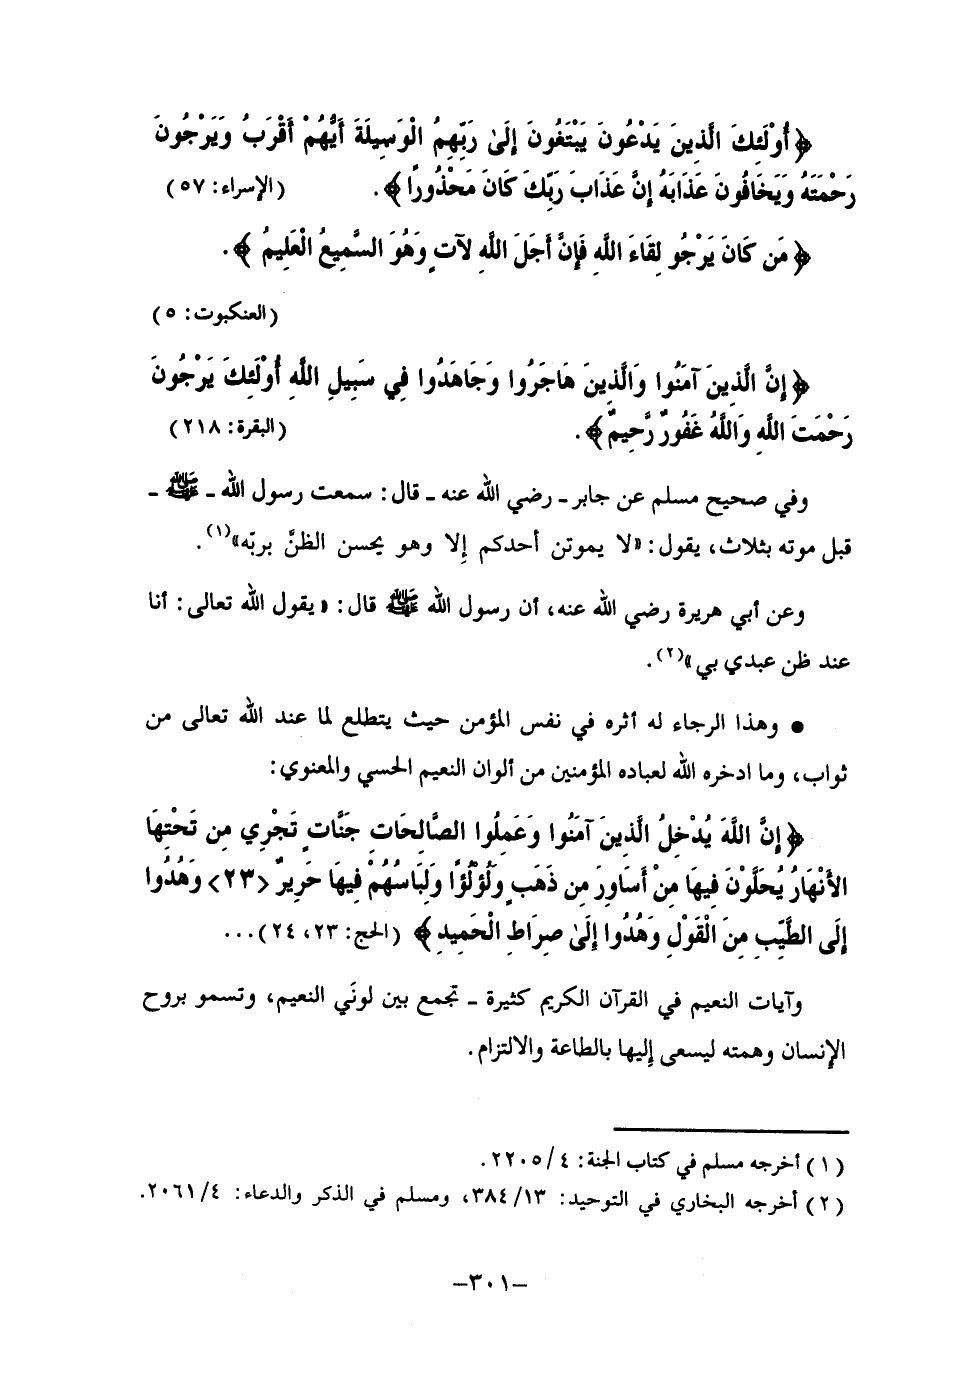 ﴿أُوْلَئِكَ الَّذِينَ يَدْعُونَ يَبْتَغُونَ إِلَىٰ رَبِّهِمُ الْوَسِيلَةَ أَيُّهُمْ أَقْرَبُ وَيَرْجُونَ
رَحْمَتَهُ وَيَخَافُونَ عَذَابَهُ إِنَّ عَذَابَ رَبِّكَ كَانَ مَحْذُورًا﴾. (الإسراء: ٥٧)
﴿مَن كَانَ يَرْجُو لِقَاءَ اللَّهِ فَإِنَّ أَجَلَ اللَّهِ لآتٍ وَهُوَ السَّمِيعُ الْعَلِيمُ﴾.
(العنكبوت: ٥)
﴿إِنَّ الَّذِينَ آمَنُوا وَالَّذِينَ هَاجَرُوا وَجَاهَدُوا فِي سَبِيلِ اللَّهِ أُوْلَئِكَ يَرْجُونَ
رَحْمَتَ اللَّهِ وَاللَّهُ غَفُورٌ رَّحِيمٌ﴾. (البقرة: ٢١٨)
وفي صحيح مسلم عن جابر ـ رضي الله عنه ـ قال: سمعت رسول الله ـ ﷺ ـ
قبل موته بثلاث، يقول: «لا يموتن أحدكم إلا وهو يحسن الظنَّ بربّه»(١).
وعن أبي هريرة رضي الله عنه، أن رسول الله ﷺ قال: «يقول الله تعالى: أنا
عند ظن عبدي بي»(٢).
● وهذا الرجاء له أثره في نفس المؤمن حيث يتطلع لما عند الله تعالى من
ثواب، وما ادخره الله لعباده المؤمنين من ألوان النعيم الحسي والمعنوي:
﴿إِنَّ اللَّهَ يُدْخِلُ الَّذِينَ آمَنُوا وَعَمِلُوا الصَّالِحَاتِ جَنَّاتٍ تَجْرِي مِن تَحْتِهَا
الأَنْهَارُ يُحَلَّوْنَ فِيهَا مِنْ أَسَاوِرَ مِن ذَهَبٍ وَلُؤْلُؤًا وَلِبَاسُهُمْ فِيهَا حَرِيرٌ <٢٣> وَهُدُوا
إِلَى الطَّيِّبِ مِنَ الْقَوْلِ وَهُدُوا إِلَىٰ صِرَاطِ الْحَمِيدِ﴾ (الحج: ٢٣، ٢٤)...
وآيات النعيم في القرآن الكريم كثيرة ـ تجمع بين لونَي النعيم، وتسمو بروح
الإنسان وهمته ليسعى إليها بالطاعة والالتزام.
(١) أخرجه مسلم في كتاب الجنة: ٤/ ٢٢٠٥.
(٢) أخرجه البخاري في التوحيد: ١٣/ ٣٨٤، ومسلم في الذكر والدعاء: ٤/ ٢٠٦١.
–٣٠١–